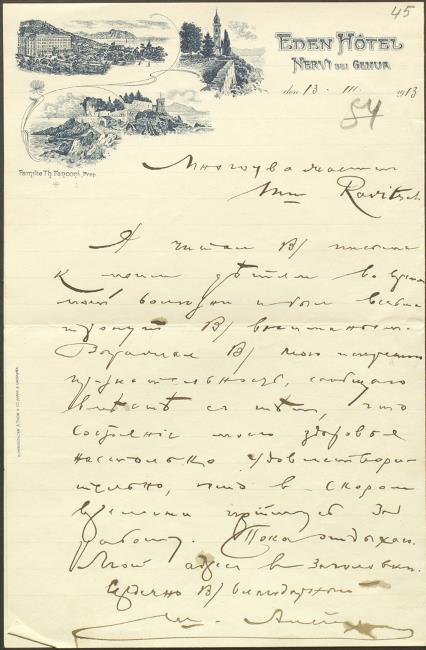 45
EDEN HÔTEL
NERVI BEI GENUA
den 13. III. 1913
84
Familie Th. Fanconi, Prop.
Многоуважаемый
Mr Ravitsch.
Я читал В/ письмо
к моим детям во время
моей болезни и был весьма
тронут В/ вниманьем.
Выражая В/ мою искреннюю
признательность, сообщаю
вместе с тем, что
состояние моего здоровья
настолько удовлетвори-
тельно, что в скором
времени примусь за
работу. Пока отдыхаю.
Мой адрес в заголовке.
Сердечно В/ благодарный